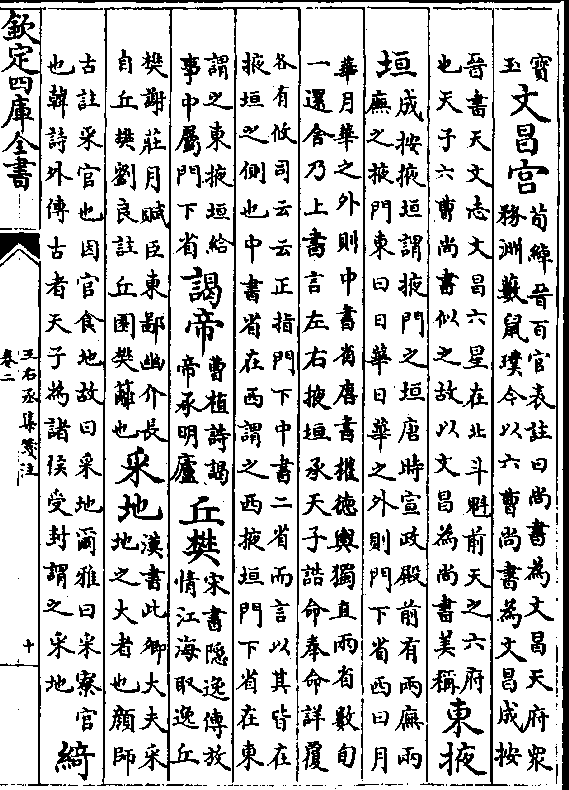 寶
玉
文昌宮
荀綽晉百官表註曰尚書為文昌天府衆
務淵藪鼠璞今以六曹尚書為文昌成按
晉書天文志文昌六星在北斗魁前天之六府
也天子六曹尚書似之故以文昌為尚書美稱
東掖
垣
成按掖垣謂掖門之垣唐時宣政殿前有兩廡兩
廡之掖門東曰日華日華之外則門下省西曰月
華月華之外則中書省唐書權德輿獨直兩省數旬
一還舍乃上書言左右掖垣承天子誥命奉命詳覆
各有攸司云云正指門下中書二省而言以其皆在
掖垣之側也中書省在西謂之西掖垣門下省在東
謂之東掖垣給
事中屬門下省
謁帝
曹植詩謁
帝承明廬
丘樊
宋書隱逸傳放
情江海取逸丘
樊謝莊月賦臣東鄙幽介長
自丘樊劉良註丘園樊籬也
采地
漢書此卿大夫采
地之大者也顏師
古註采官也因官食地故曰采地爾雅曰采寮官
也韓詩外傳古者天子為諸侯受封謂之采地
綺
欽定四庫全書
王右丞集箋注
卷二
十